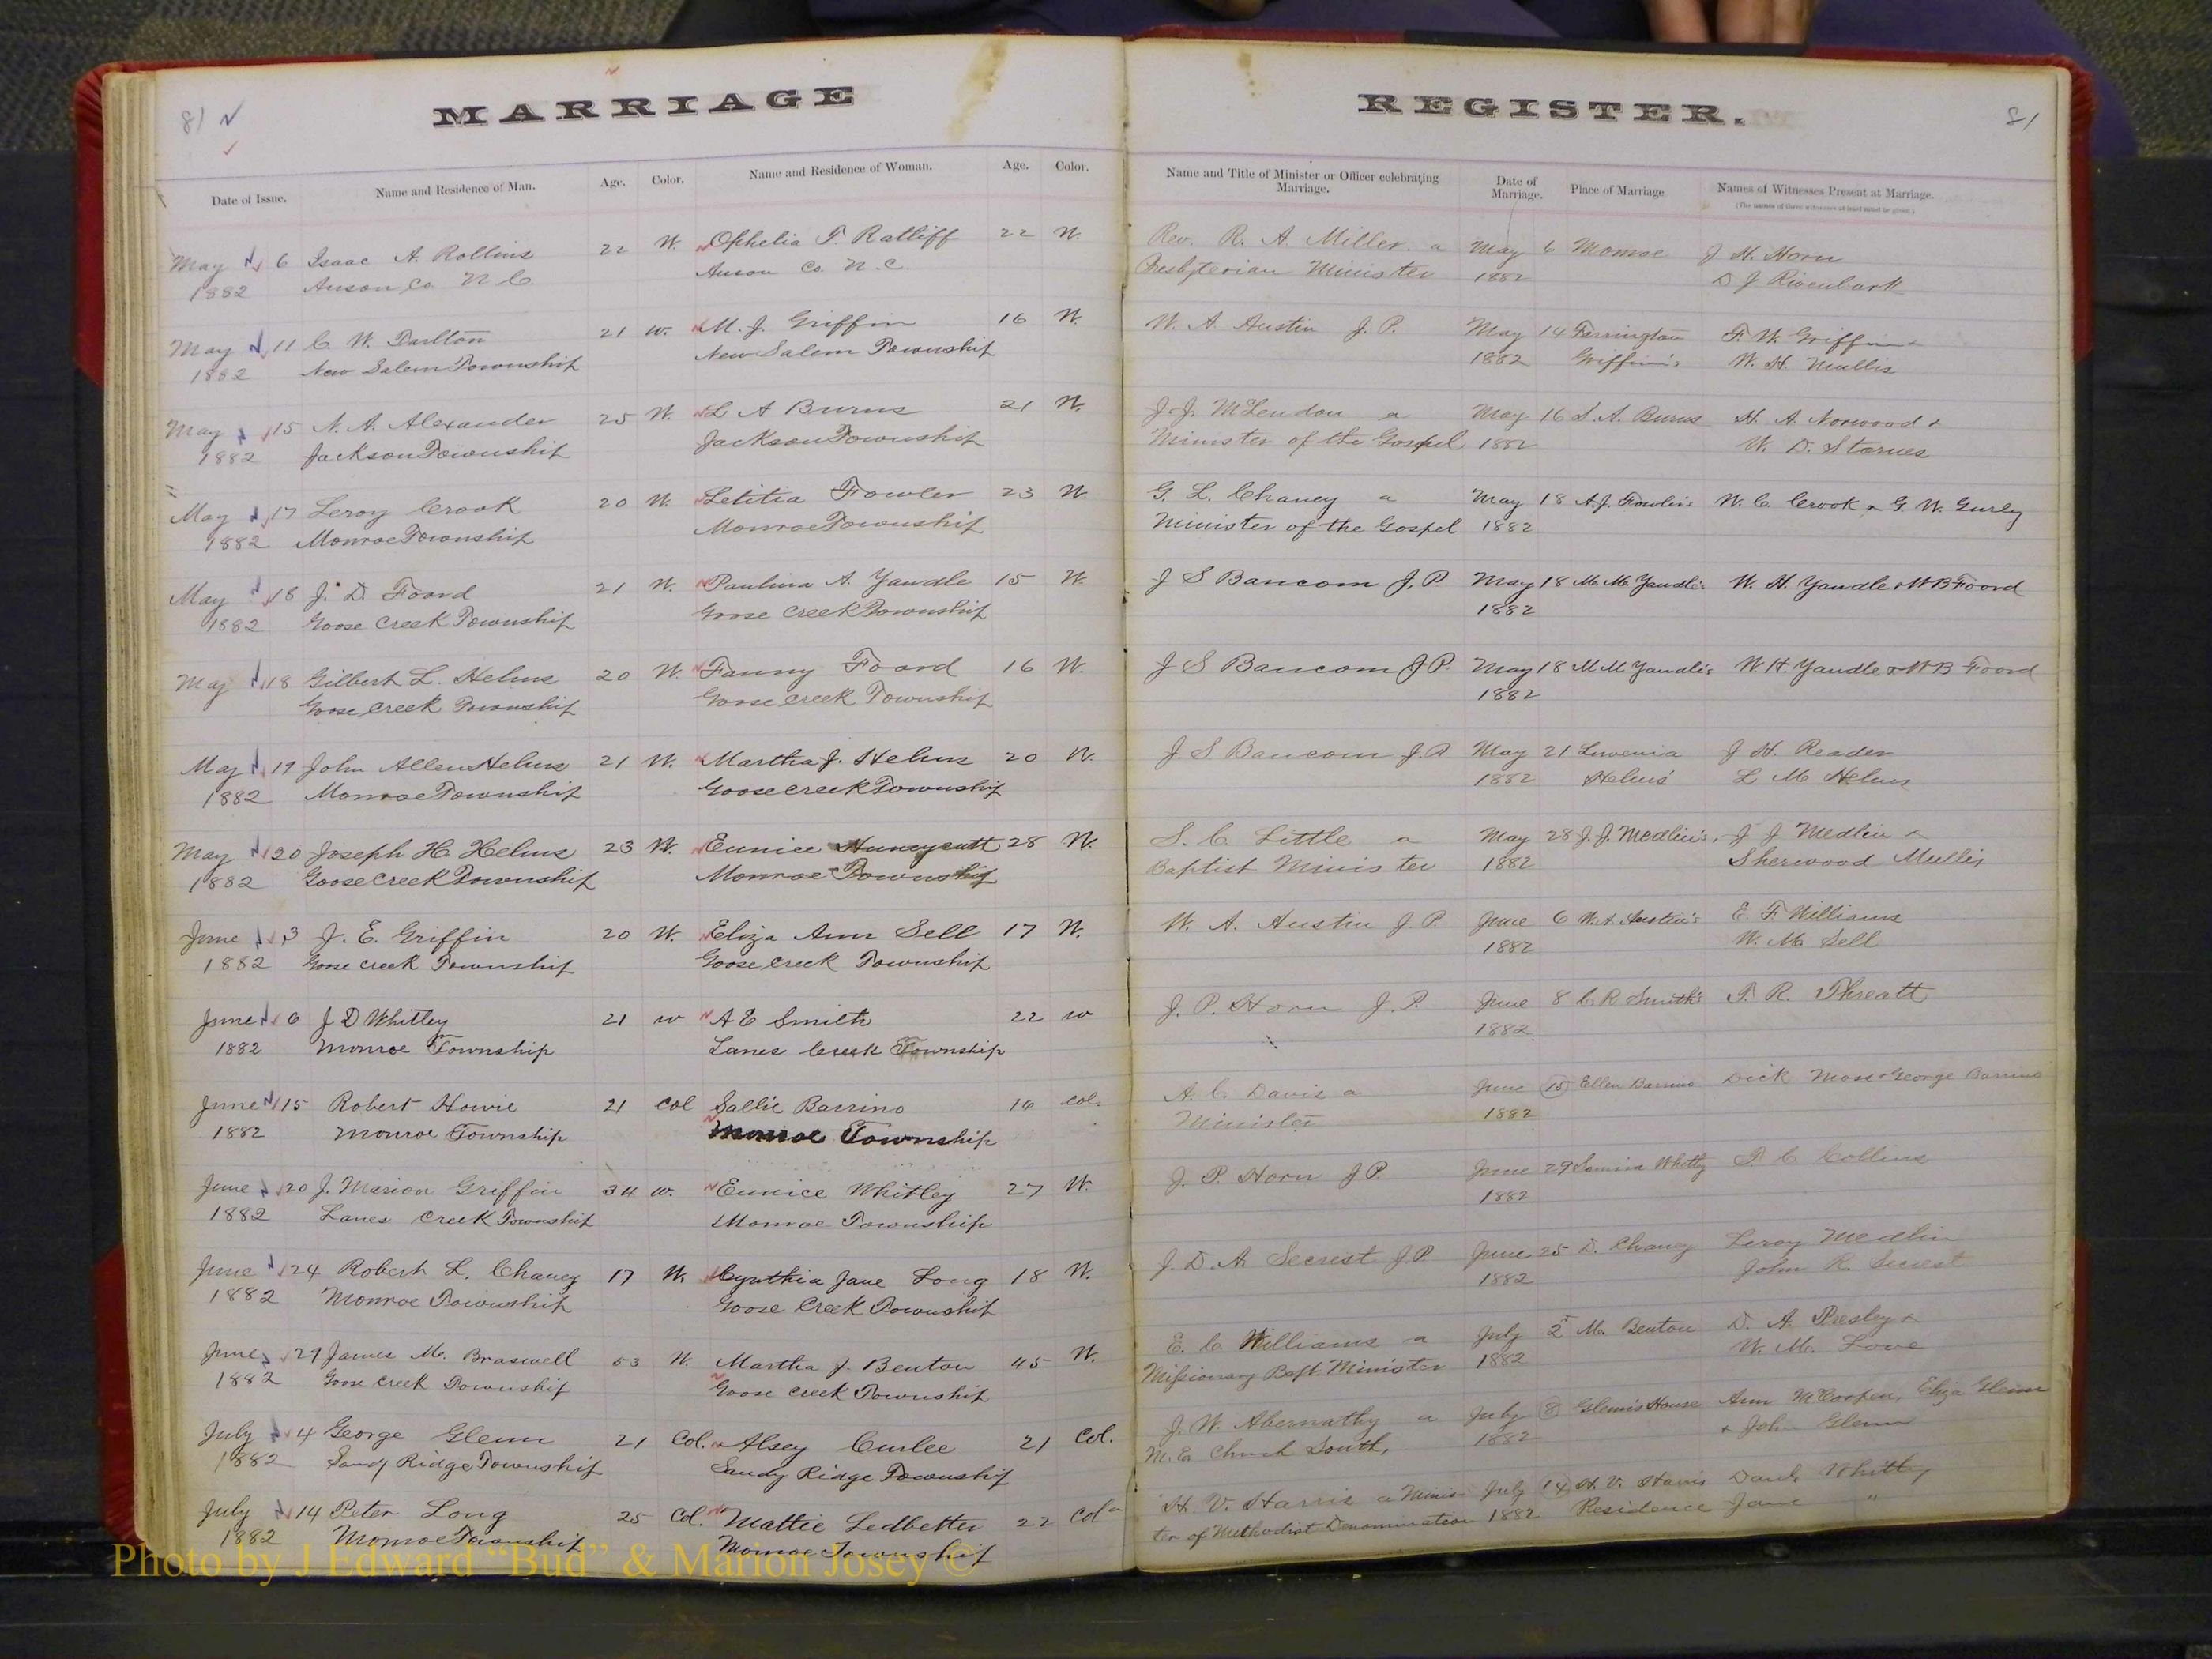 81
MARRIAGE
Date of Issue. Name and Residence of Man. Age. Color. Name and Residence of Woman. Age. Color.
May 6 Isaac A. Rollins 22 W. Ophelia T. Ratliff 22 W.
1882 Anson Co. N C Anson Co. N.C.
May 11 C. W. Tarlton 21 W. M. J. Griffin 16 W.
1882 New Salem Township New Salem Township
May 15 N. A. Alexander 25 W. L A Burns 21 W.
1882 Jackson Township Jackson Township
May 17 Leroy Crook 20 W. Letitia Fowler 23 W.
1882 Monroe Township Monroe Township
May 18 J. D. Foard 21 W. Paulina A. Yandle 15 W.
1882 Goose Creek Township Goose Creek Township
May 18 Gilbert L. Helms 20 W. Fanny Foard 16 W.
Goose Creek Township Goose Creek Township
May 19 John Allen Helms 21 W. Martha J. Helms 20 W.
1882 Monroe Township Goose Creek Township
May 20 Joseph H. Helms 23 W. Eunice Huneycutt 28 W.
1882 Goose Creek Township Monroe Township
June 3 J. E. Griffin 20 W. Eliza Ann Sell 17 W.
1882 Goose Creek Township Goose Creek Township
June 6 J D Whitley 21 W A E Smith 22 W
1882 Monroe Township Lanes Creek Township
June 15 Robert Howie 21 Col Sallie Barrino 16 Col.
1882 Monroe Township Monroe Township
June 20 J. Marion Griffin 34 W. Eunice Whitley 27 W.
1882 Lanes Creek Township Monroe Township
June 24 Robert L. Chaney 17 W. Cynthia Jane Long 18 W.
1882 Monroe Township Goose Creek Township
June 29 James M. Braswell 53 W. Martha J. Benton 45 W.
1882 Goose Creek Township Goose Creek Township
July 4 George Glenn 21 Col. Alsey Curlee 21 Col.
1882 Sandy Ridge Township Sandy Ridge Township
July 14 Peter Long 25 Col. Mattie Ledbetter 22 Col
1882 Monroe Township Monroe Township
REGISTER.
81
Name and Title of Minister or Officer celebrating Marriage. Date of Marriage. Place of Marriage Names of Witnesses Present at Marriage.
(The names of three witnesses at least must be given.)
Rev. R. A. Miller. a May 6 Monroe J H. Horn
Presbyterian Minister 1882 D J Rivenbark
W. A. Austin J. P. May 14 Farrington F. W. Griffin &
1882 Griffin's W. H. Mullis
J. J. McLendon a May 16 L. A. Burns H. A. Norwood &
Minister of the Gospel 1882 W. D. Starnes
G. L. Chaney a May 18 A. J. Fowler's W. C. Crook & G. W. Gurley
Minister of the Gospel 1882
J S Baucom J. P May 18 M. M. Yandle's W. H. Yandle & W B Foord
1882
J S Baucom J P. May 18 M M Yandle's W. H. Yandle & W B Foord
1882
J. S Baucom J. P May 21 Luvenia J H. Reader
1882 Helms' L M Helms
S. C. Little a May 28 J. J. Medlin's. J J Medlin &
Baptist Minister 1882 Sherwood Mullis
W. A. Austin J. P. June 6 W. A. Austin's E F Williams
1882 W. M. Sell
J. P. Horn J. P. June 8 C R Smith's T. R. Threatt
1882
A. C. Davis a June 15 Ellen Barrino Dick Moss & George Barrino
Minister 1882
J. P. Horn J P. June 29 Whitley P C Collins
1882
J. D. A. Secrest J. P June 25 D. Chaney Leroy Medlin
1882 John R. Secrest
E. C. Williams a July 2 M. Benton D. A. Presley &
Missionary Bapt. Minister 1882 W. M. Love
J. W. Abernathy a July 8 Glenn's House Ann Eliza Glenn
M. E. Church South, 1882 & John Glenn
H. V. Harris a Minis- July 14 H. V. Harris Whitley
ter of Methodist Denomination 1882 Residence Jane "
Photo by J Edward "Bud" & Marion Josey ©